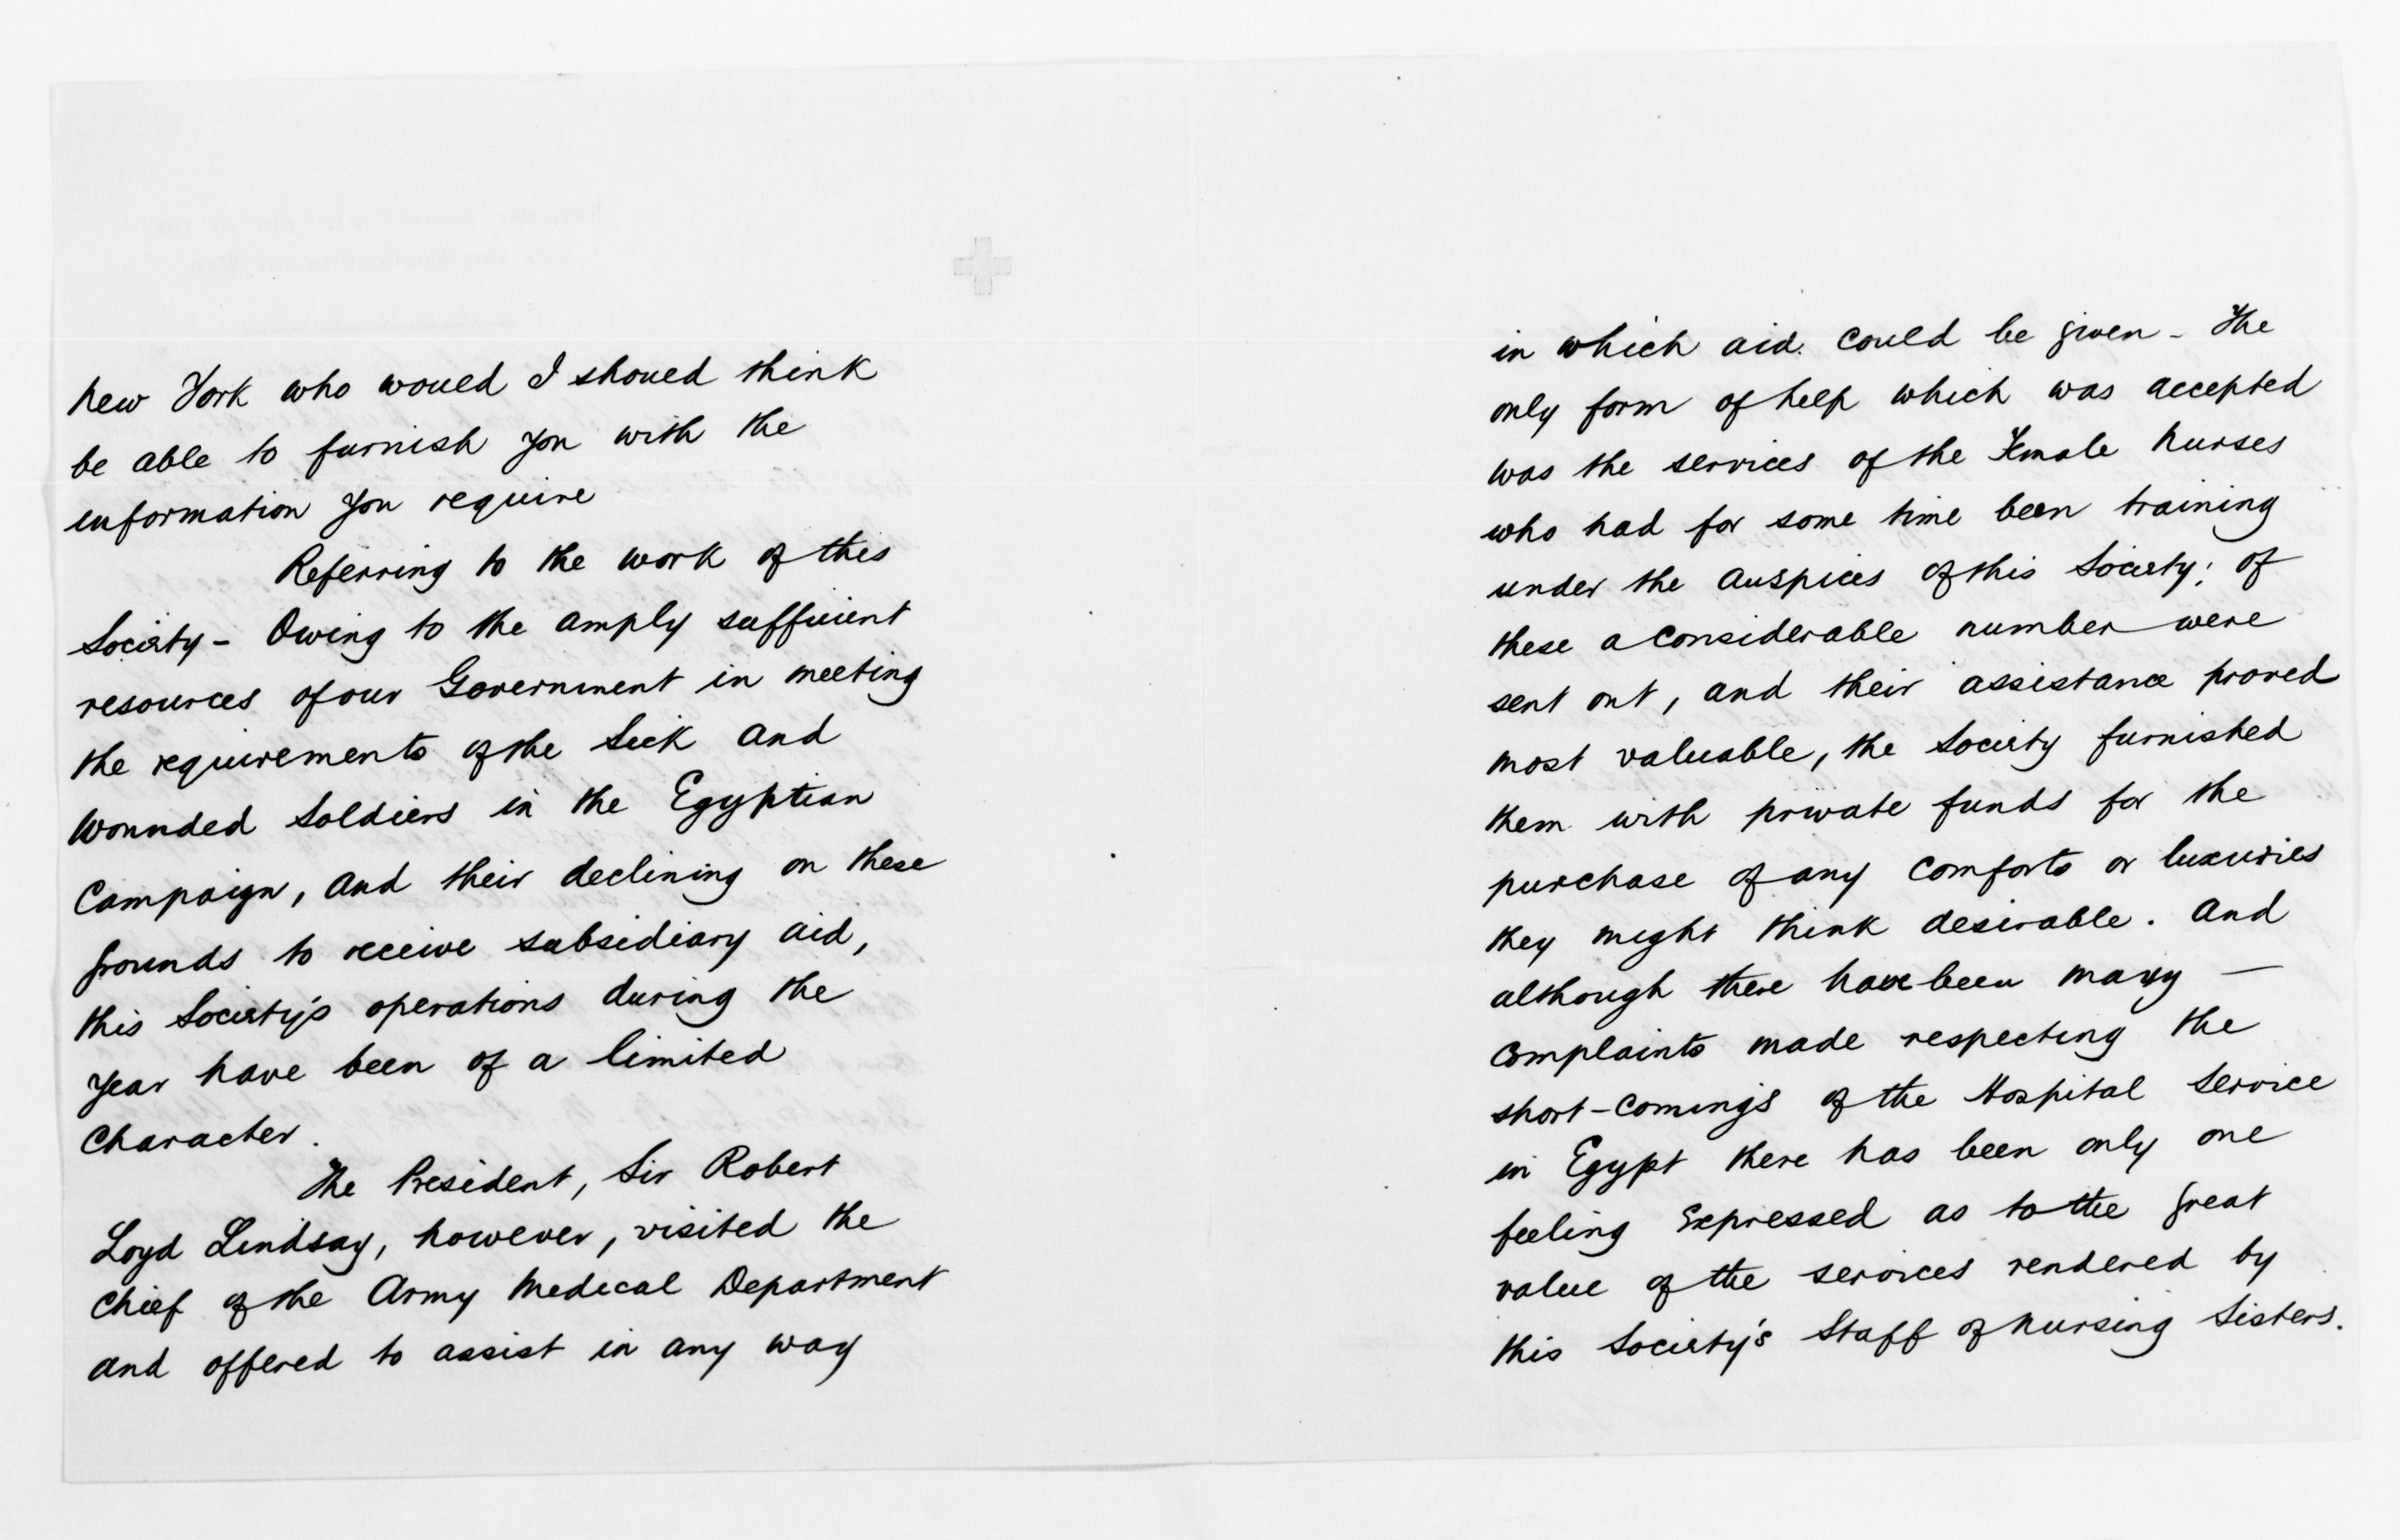 New York who would I should think
be able to furnish you with the
information you require
Referring to the work of this
Society - Owing to the amply sufficient
resources of our Government in meeting
the requirements of the Sick and
Wounded Soldiers in the Egyptian
Campaign, and their declining on these
grounds to receive subsidiary aid,
this Society's operations during the
year have been of a limited
Character.
The President, Sir Robert
Loyd Lindsay, however, visited the
Chief of the Army Medical Department
and offered to assist in any way
in which aid. could be given - The
only form of help which was accepted
was the services of the Female Nurses
who had for some time been training
under the auspices of this Society; of
these a considerable number were
sent out, and their assistance proved
most valuable, the Society furnished
them with private funds for the
purchase of any comforts or luxuries
they might think desirable. And
although there have been many —
complaints made respecting the
short-comings of the Hospital Service
in Egypt there has been only one
feeling expressed as to the great
value of the services rendered by
this Society's Staff of Nursing Sisters.